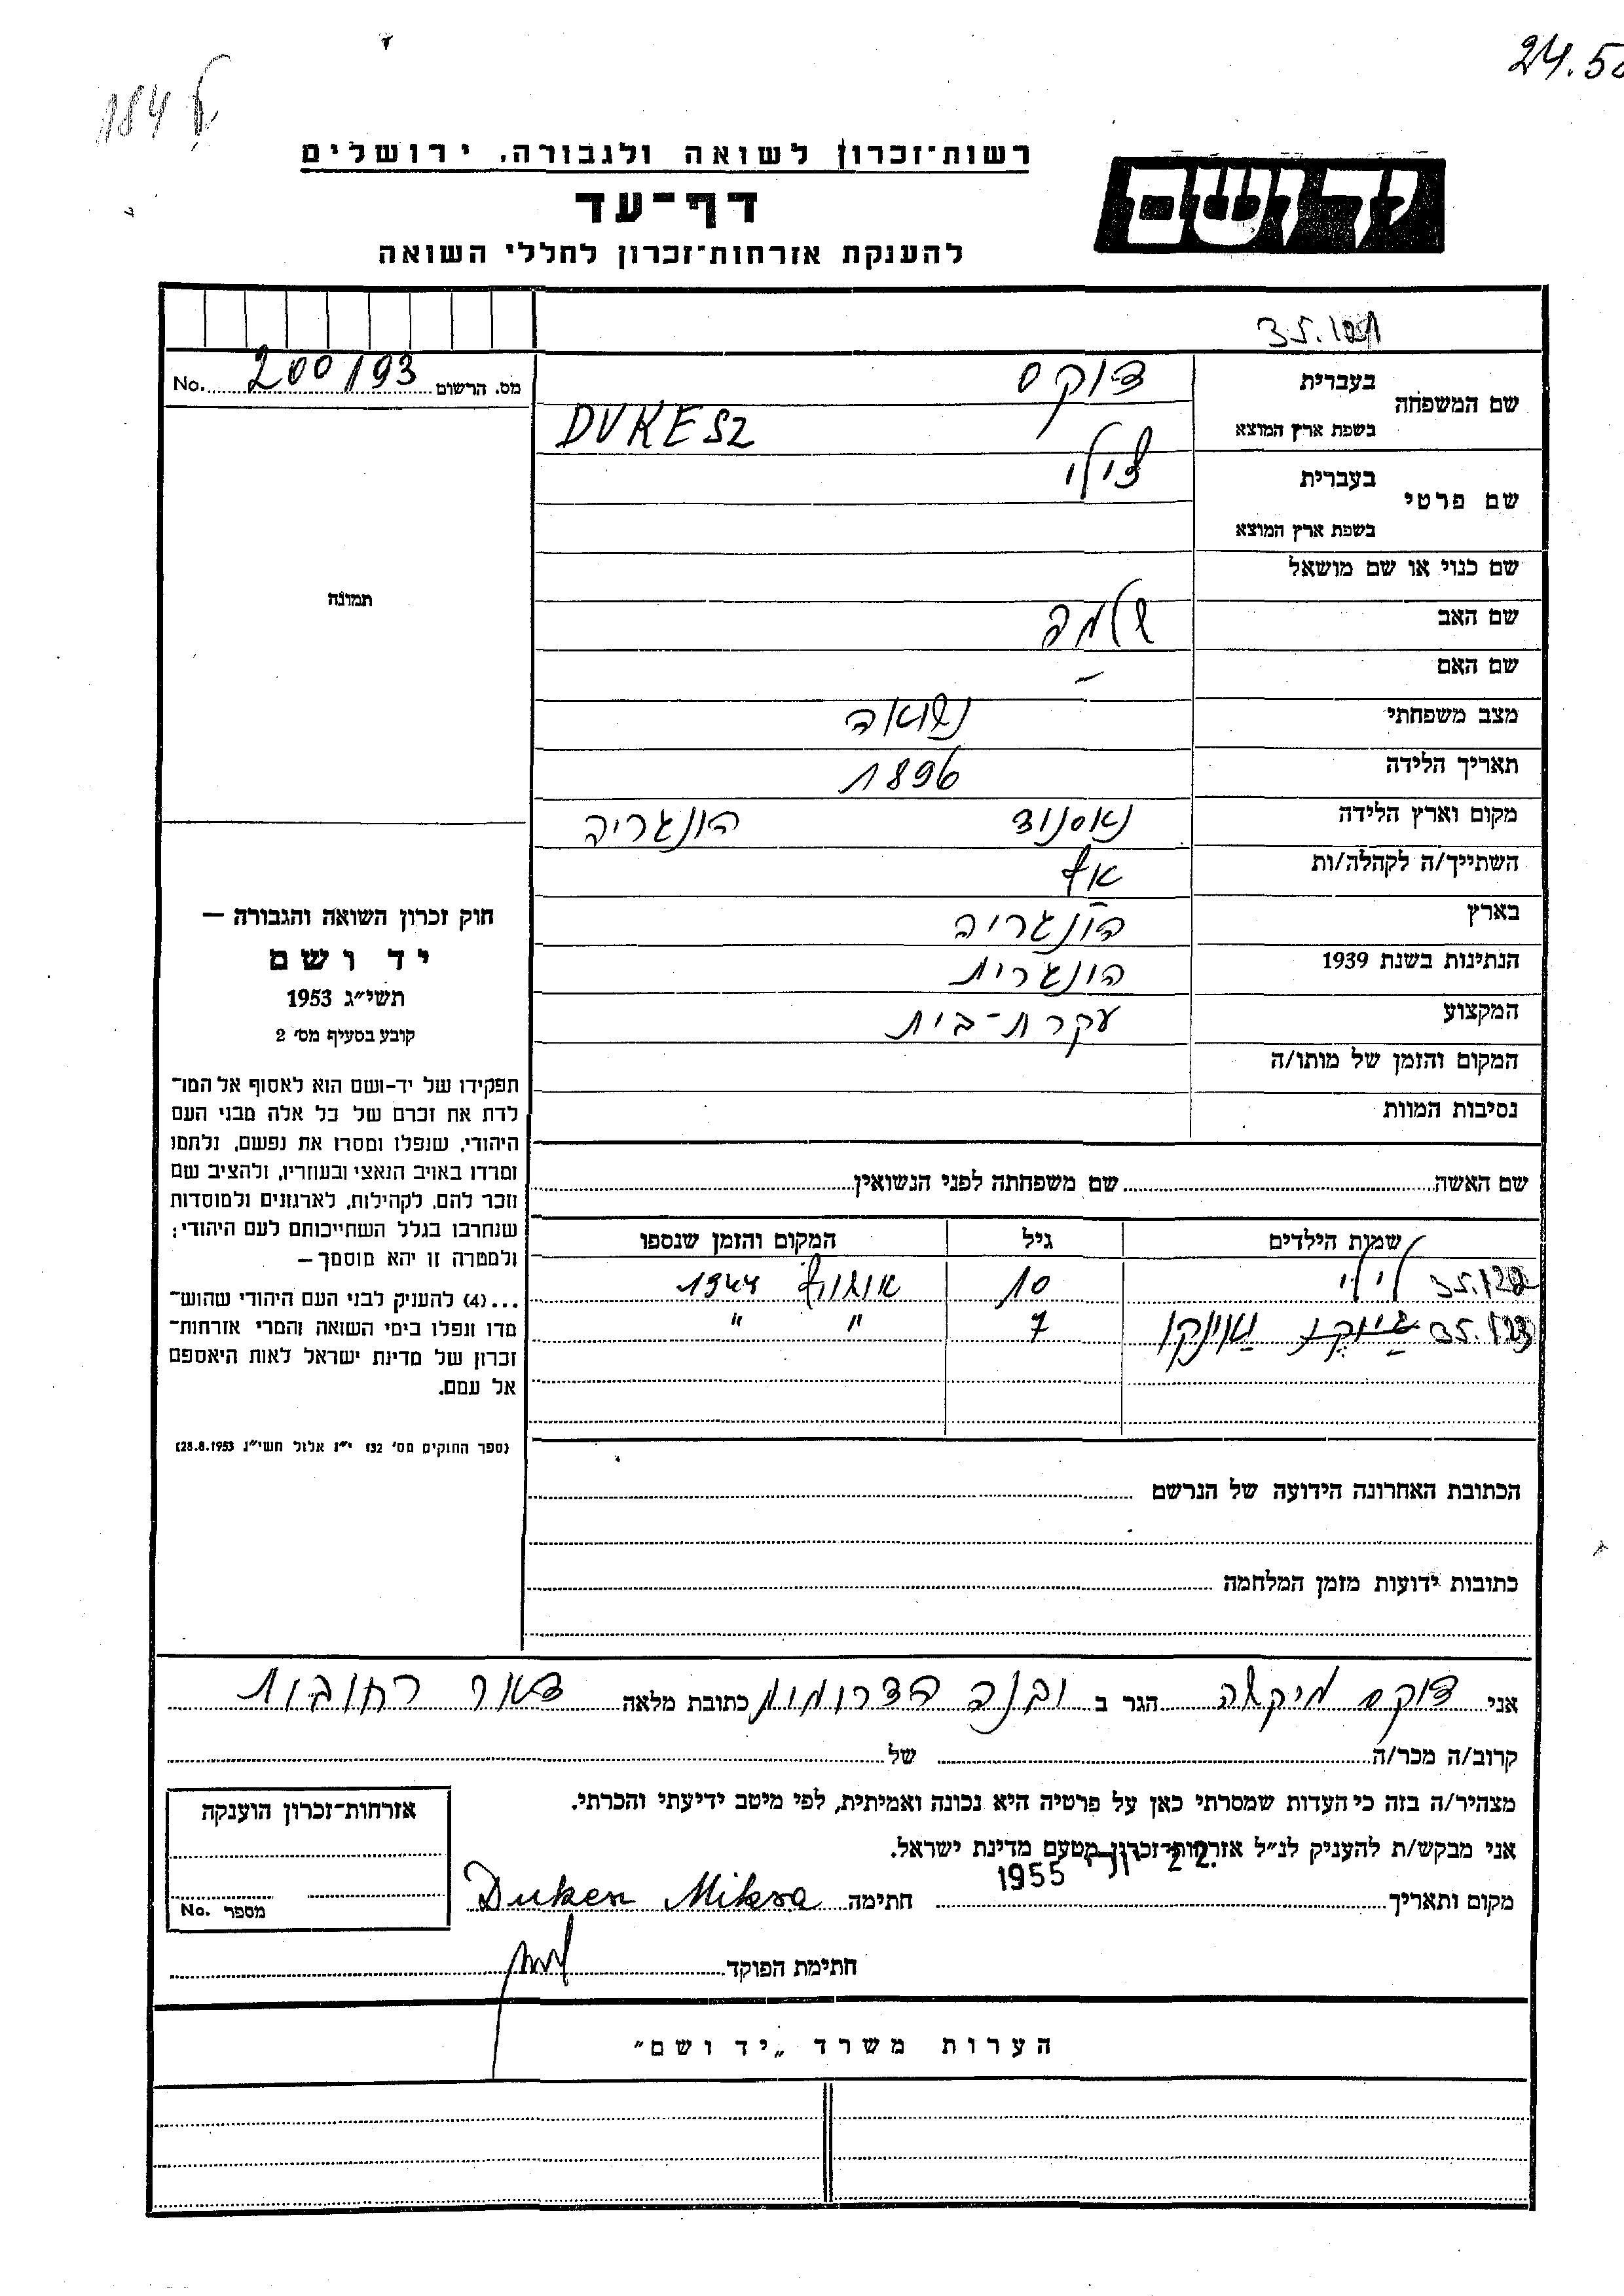 24.50
184 ל
רשות־זכרון לשואה ולגבורה, ירושלים
יד ושם
דף־עד
להענקת אזרחות־זכרון לחללי השואה
35.121
מס. הרשום 200193 No.
שם המשפחה
בעברית דוקס
בשפת ארץ המוצא DUKESZ
שם פרטי
בעברית צילי
בשפת ארץ המוצא
שם כנוי או שם מושאל
תמונה
שם האב שלמה
שם האם –
מצב משפחתי נשואה
תאריך הלידה 1896
מקום וארץ הלידה הונגריה
השתייך/ה לקהלה/ות
בארץ הונגריה
הנתינות בשנת 1939 הונגרית
המקצוע עקרת-בית
המקום והזמן של מותו/ה
נסיבות המוות
חוק זכרון השואה והגבורה —
יד ושם
תשי״ג 1953
קובע בסעיף מס׳ 2
תפקידו של יד-ושם הוא לאסוף אל המו־
לדת את זכרם של כל אלה מבני העם
היהודי, שנפלו ומסרו את נפשם, נלחמו
ומרדו באויב הנאצי ובעוזריו, ולהציב שם
וזכר להם, לקהילות, לארגונים ולמוסדות
שנחרבו בגלל השתייכותם לעם היהודי;
ולמטרה זו יהא מוסמך—
...(4) להעניק לבני העם היהודי שהוש־
מדו ונפלו בימי השואה והמרי אזרחות־
זכרון של מדינת ישראל לאות היאספם
אל עמם.
(ספר החוקים מס׳ 132 י״ז אלול תשי״ג 28.8.1953)
שם האשה שם משפחתה לפני הנשואין
שמות הילדים גיל המקום והזמן שנספו
35.122 לילי 10 אושויץ 1944
35.123 7 " "
הכתובת האחרונה הידועה של הנרשם
כתובות ידועות מזמן המלחמה
אני דוקס מיקשה הגר ב יבנה הדרומית כתובת מלאה דואר רחובות
קרוב/ה מכר/ה של
מצהיר/ה בזה כי העדות שמסרתי כאן על פרטיה היא נכונה ואמיתית, לפי מיטב ידיעתי והכרתי.
אני מבקש/ת להעניק לנ״ל אזרחות־זכרון מטעם מדינת ישראל.
22. יוני 1955
מקום ותאריך חתימה Dukesz Miksa
חתימת הפוקד
אזרחות־זכרון הוענקה
מספר No.
הערות משרד „יד ושם״